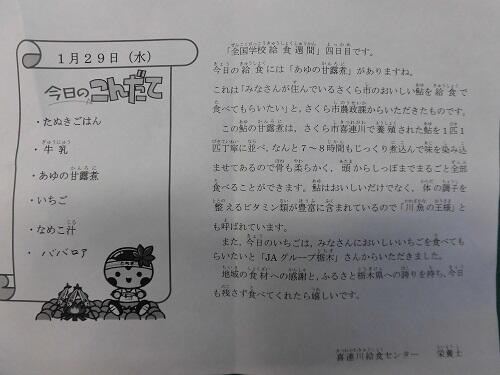 1月29日(水)
今日のこんだて
・たぬきごはん
・牛乳
・あゆの甘露煮
・いちご
・なめこ汁
・ババロア
「全国学校給食週間」四日目です。
今日の給食には「あゆの甘露煮」がありますね。
これは「みなさんが住んでいるさくら市のおいしい鮎を給食で
食べてもらいたい」と、さくら市農政課からいただきたものです。
この鮎の甘露煮は、さくら市喜連川で養殖された鮎を1匹1
匹丁寧に並べ、なんと7~8時間もじっくり煮込んで味を染み込
ませてあるので骨も柔らかく、頭からしっぽまでまるごと全部
食べることができます。鮎はおいしいだけでなく、体の調子を
整えるビタミン類が豊富に含まれているので「川魚の王様」と
も呼ばれています。
また、今日のいちごは、みなさんにおいしいいちごを食べても
らいたいと「JAグループ栃木」さんからいただきました。
地域の食材への感謝と、ふるさと栃木県への誇りを持ち、今日
も残さず食べてくれたら嬉しいです。
喜連川給食センター 栄養士